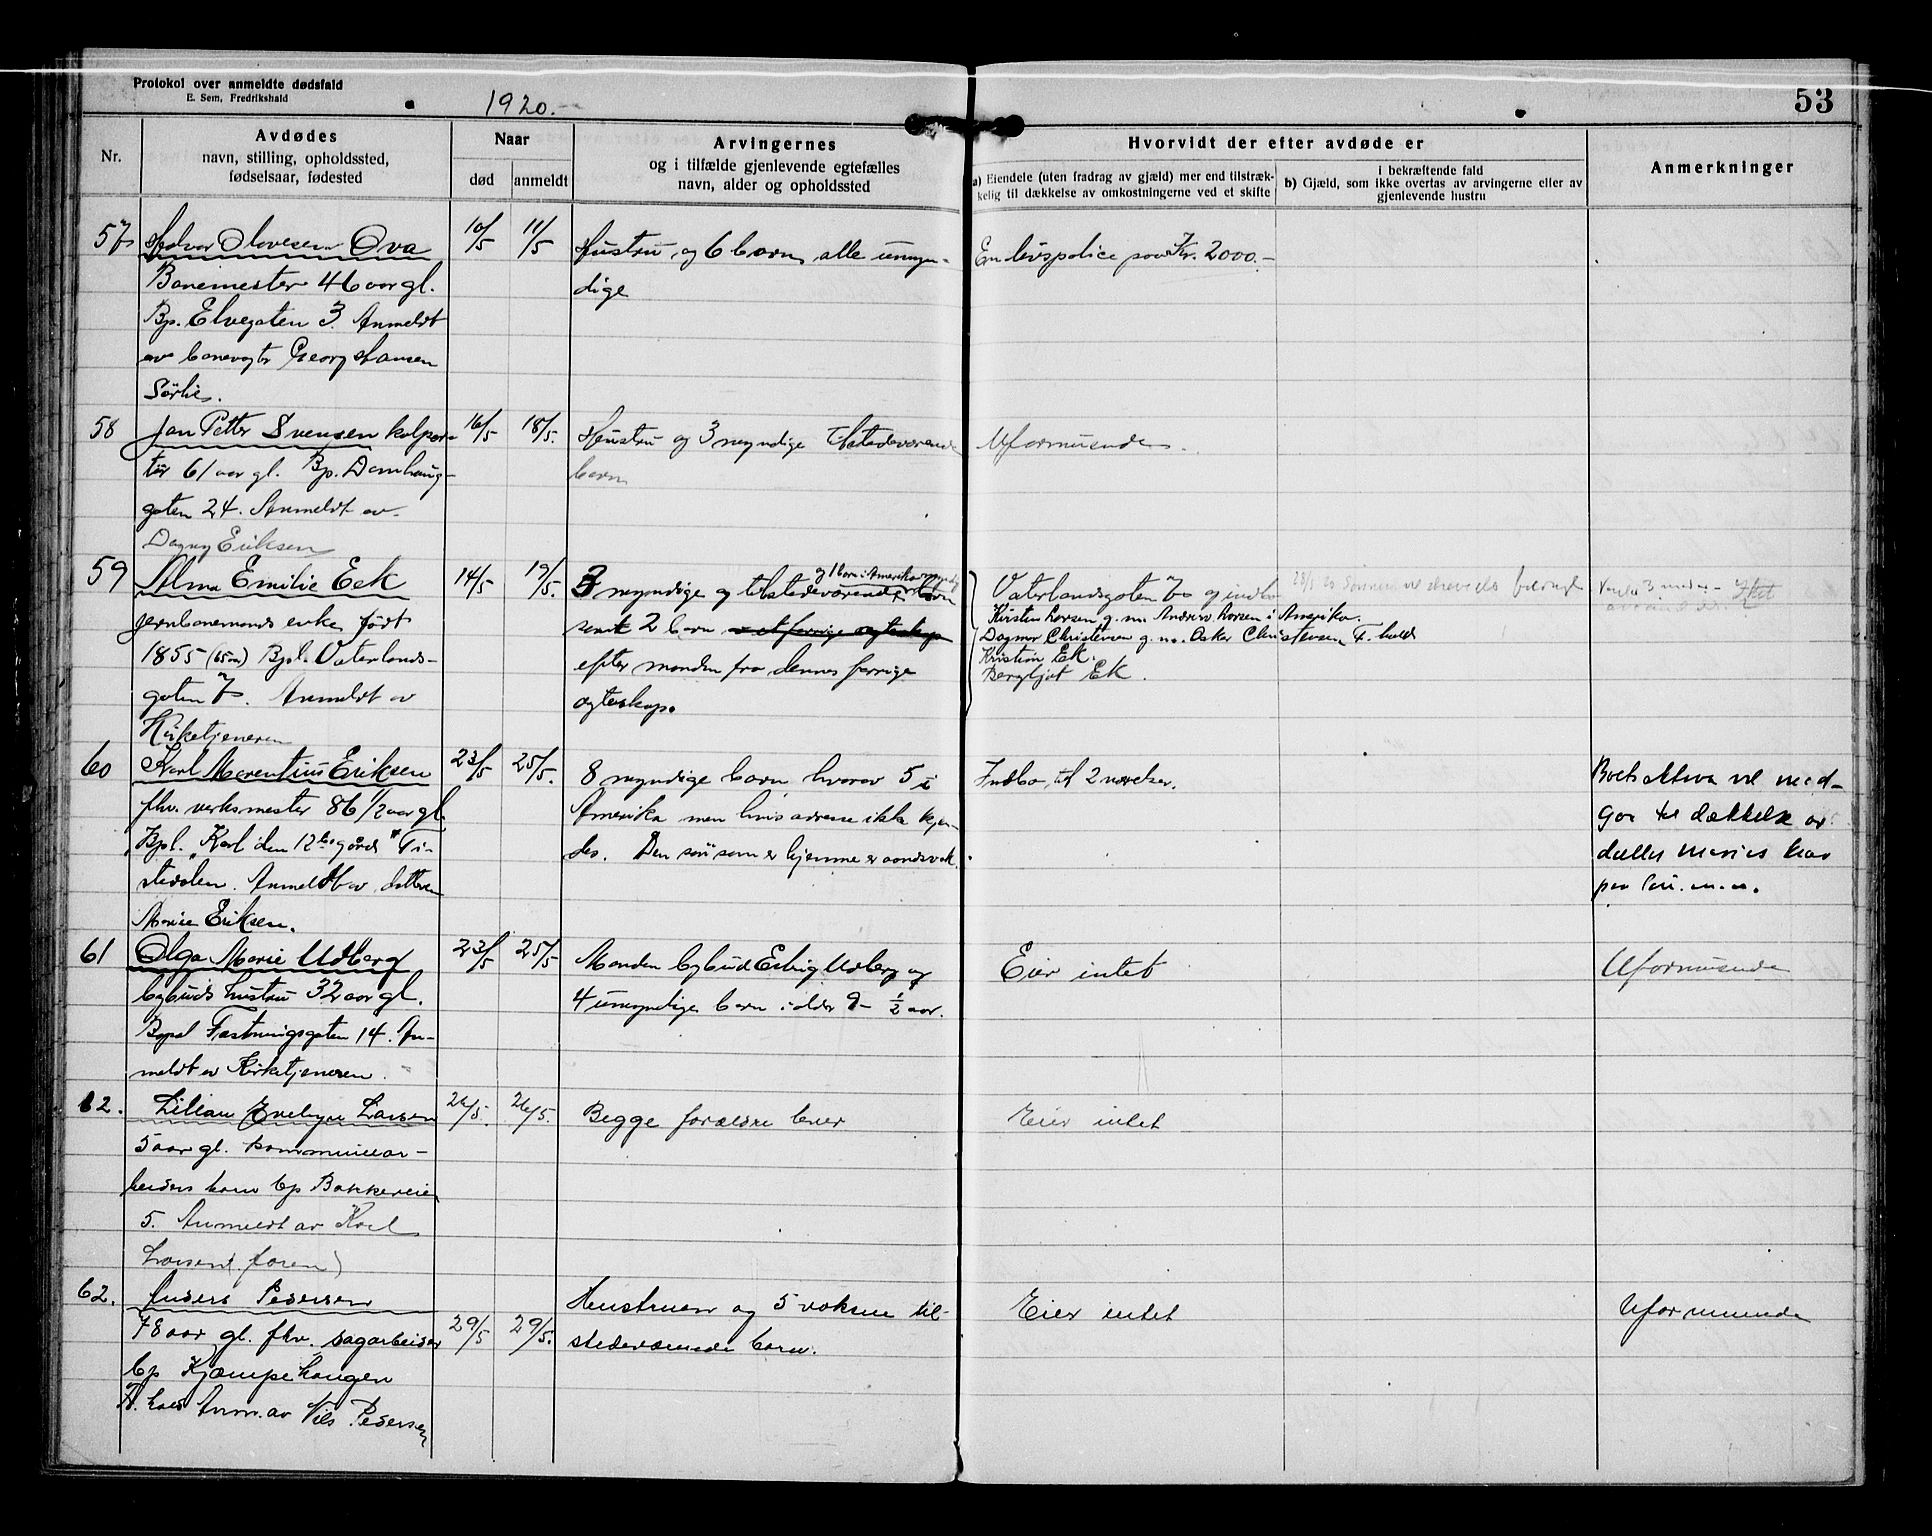 Protokol over anmeldte dødsfald
E. Sem, Fredrikshald
1920.
53
Nr.
Avdødes
navn, stilling, opholdssted,
fødselsaar, fødested
Naar
død
anmeldt
Arvingernes
og i tilfælde gjenlevende egtefælles
navn, alder og opholdssted
Hvorvidt der efter avdøde er
a) Eiendele (uten fradrag av gjæld) mer end tilstræk-
kelig til dækkelse av omkostningerne ved et skifte
i bekræftende fald
b) Gjæld, som ikke overtas av arvingerne eller av
gjenlevende hustru
Anmerkninger
57
Halvor Olavesen Ova
Banemester 46 aar gl.
Bp. Elvegaten 3. Anmeldt
av banevogter Georg Hansen
Sørlie.
10/5
11/5
Hustru og 6 barn, alle umyn-
dige
En livspolice paa Kr. 2000.-
58
Jan Petter Svensen kolpor-
tør 61 aar gl. Bp. Damhaug-
gaten 24. Anmeldt av
Dagny Eriksen
16/5
18/5.
Hustru og 3 myndige tilstedeværende
barn
Uformuende.
59
Alma Emilie Eek
jernbanemands enke født
1855 (65 aar) Bpl. Vaterlands-
gaten 7. Anmeldt av
Kirketjeneren
14/5
19/5.
og 1 barn i Amerika myndig
3 myndige og tilstedeværende barn
samt 2 barn av et forrige egteskap
efter manden fra dennes forrige
egteskap.
Vaterlandsgaten 7 og indbo
Kirsten Larsen g. m. Andreas Larsen i Amerika.
Dagmar Christensen g. m. Oskar Christensen F.hald
Kristian Ek.
Bergljot Ek.
60
Karl Marentius Eriksen
fhv. verksmester 86 1/2 aar gl.
Bpl. "Karl den 12tes gård" Ti-
stedalen. Anmeldt av datteren
Marie Eriksen.
23/5
25/5.
8 myndige barn, hvorav 5 i
Amerika men hvis adresse ikke kjen-
des. Den søn som er hjemme er aandssvak.
Indbo til 2 værelser.
Boets aktiva vil med-
gaa til dækkelse av
datter Maries krav
paa løn m.m.
61
Olga Marie Udberg
bybuds hustru 32 aar gl.
Bopæl Fæstningsgaten 14. An-
meldt av Kirketjeneren.
23/5
25/5
Manden bybud Udberg og
4 umyndige barn i alder 9 - 1/2 aar.
Eier intet
Uformuende
62.
Lilian Evelyn Larsen
5 aar gl. kommunear-
beiders barn bp Bakkeveien
5. Anmeldt av Karl
Larsen (faren)
26/5.
26/5.
Begge forældre lever
Eier intet
62.
Anders Pedersen
78 aar gl. fhv. sagarbeider
bp Kjæmpehaugen
F.hald Anm. av Nils Pedersen
29/5
29/5.
Hustruen og 5 voksne til-
stedeværende barn.
Eier intet
Uformuende